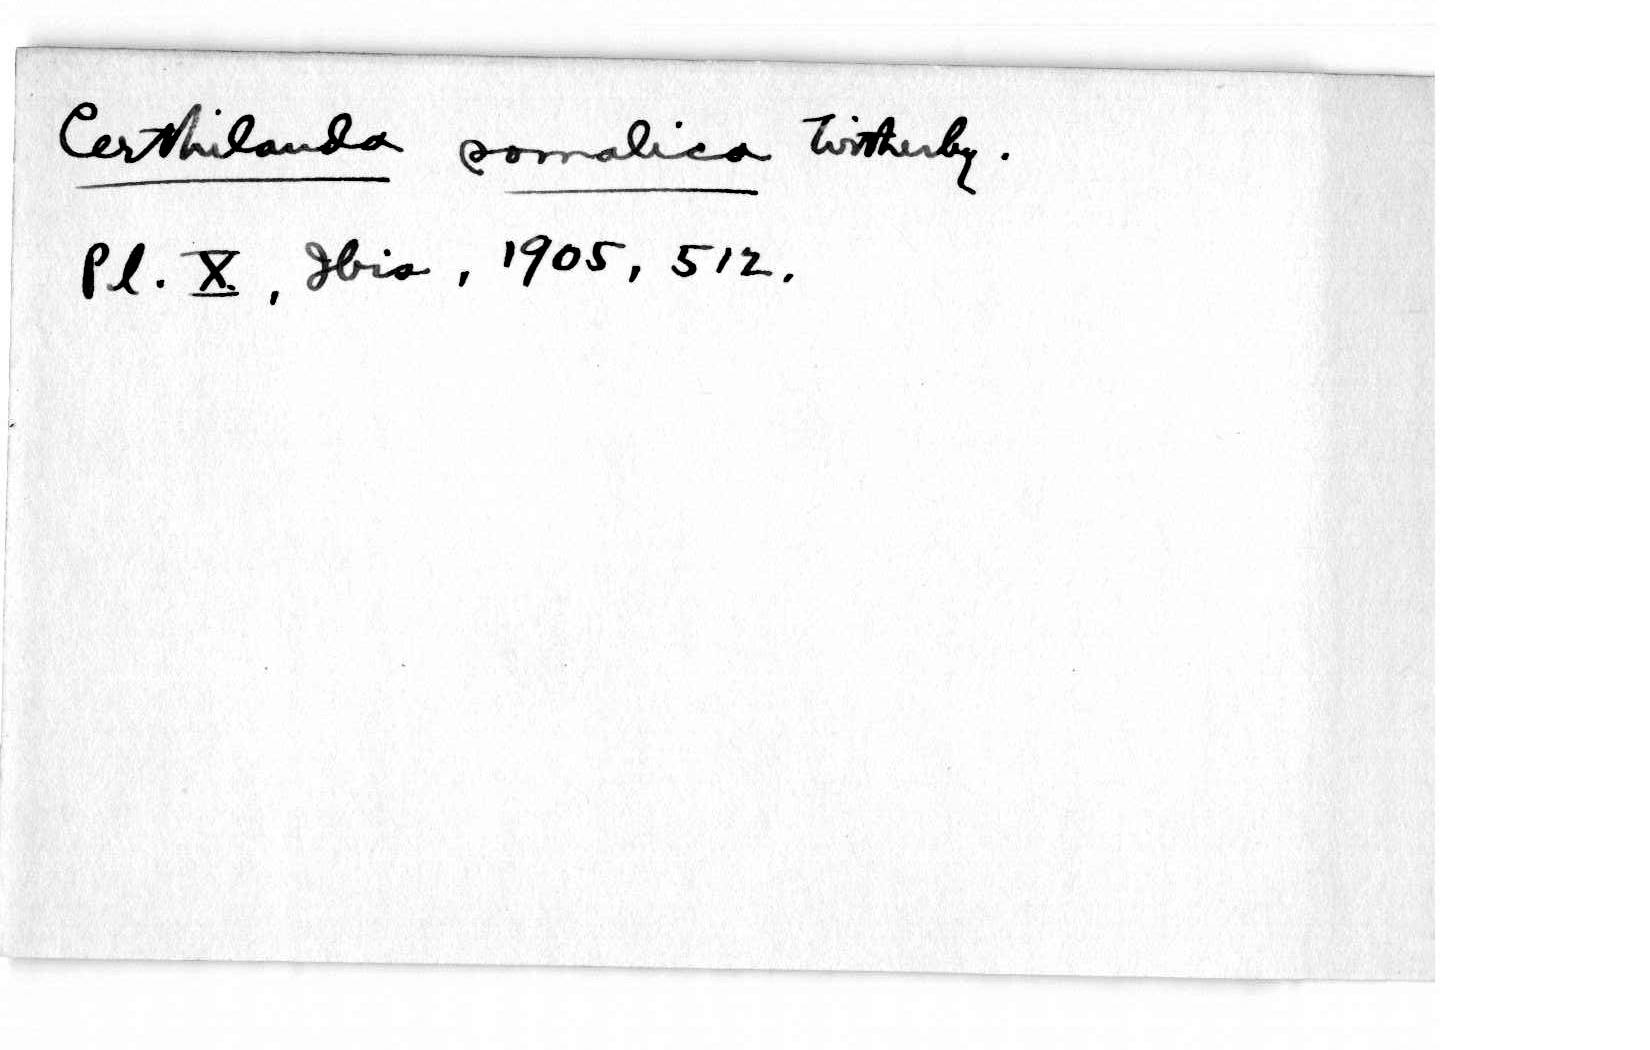 Certhilauda somalica Witherby.
Pl. X, Ibis, 1905, 512.